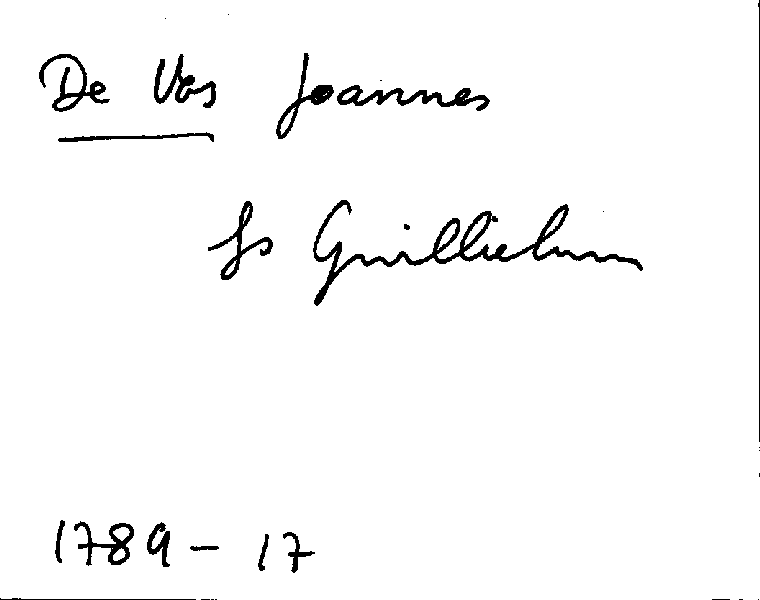 De Vos Joannes
fs Guillielmm
1789 - 17